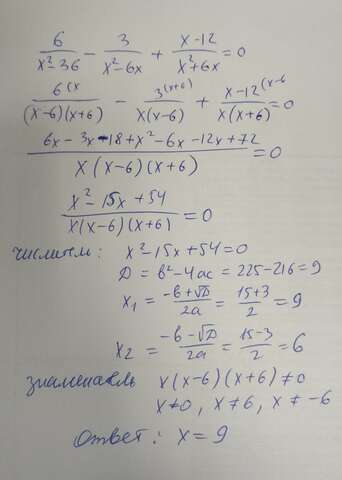 6/(x²-36) - 3/(x²-6x) + (x-12)/(x²+6x) = 0
6(x/((x-6)(x+6)) - 3(x+6)/(x(x-6)) + x-12(x-6/(x(x+6)) = 0
(6x - 3x - 18 + x² - 6x - 12x + 72)/(x(x-6)(x+6)) = 0
(x² - 15x + 54)/(x(x-6)(x+6)) = 0
числитель: x² - 15x + 54 = 0
D = b² - 4ac = 225 - 216 = 9
x₁ = (-b+√D)/2a = (15+3)/2 = 9
x₂ = (-b-√D)/2a = (15-3)/2 = 6
знаменатель x(x-6)(x+6) ≠ 0
x ≠ 0, x ≠ 6, x ≠ -6
Ответ: x = 9